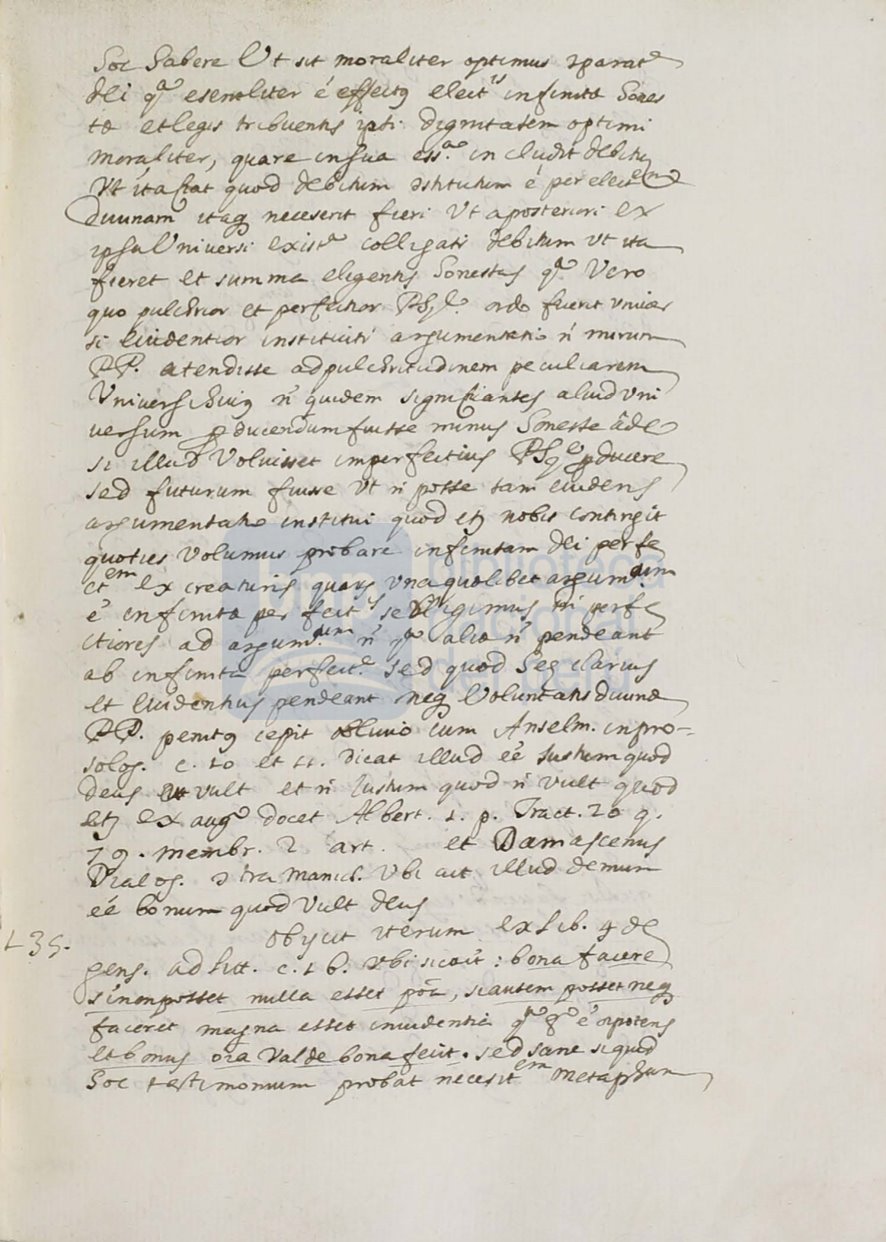 Hoc habere Ut sit moraliter optimus
dei esentliter é effectq elect.is infinite hones
te et legis tribuentis ipti dignitatem optimi
moraliter, quare in sua ess.a includit debitu
Ut ita fiat quod debitum é per elect.em
diuinam itaq neceserit fieri Ut a posteriori ex
ipsa Universi exist.a colligatr debitum ut ita
fieret et summa eligentis honestas Vero
quo pulchrior et perfectior ordo fuerit univer
si evidentior instituitr argumentatio ñ mirum
PP. atendisse ad pulchritudinem peculiarem
Universi ñ quidem significantes aliud uni
versum producendum fuisse minus honeste a deo
si illud Voluisset imperfectius producere
sed futurum fuisse Ut ñ posse tam evidens
argumentatio institui quod etj nobis contingit
quoties volumus probare infinitam dei perfe
ct.em ex creaturis quavis una quolibet
é infinita perfect.s seligimus tñ perfe
ctiores ad ñ alie ñ pendeant
ab infinita perfect.e sed quod heq clarius
et evidentius pendeant neq Voluntatis divine
PP. penitq cepit oblivio cum Anselm. in pro-
solog. c. 10 et 11. dicat illud éé Justum quod
deus vult et ñ Justum quod ñ vult quod
etj ex aug.o docet Albert. 1. p. Tract. 20 q.
79. membr. 2 art. et Damascenus
Dialog. Manich. Ubi ait illud demum
éé bonum quod Vult deus
135. Objicit iterum ex lib. 4 de
gens. ad litt. c. 16. Ubi sic ait: bona facere
si non posset nulla esset potã, si autem posset neq
faceret magna esset invidentia é oipotens
et bonus oia Valde bona fecit. sed sane si quid
hoc testimonium probat necesit.em metaphun